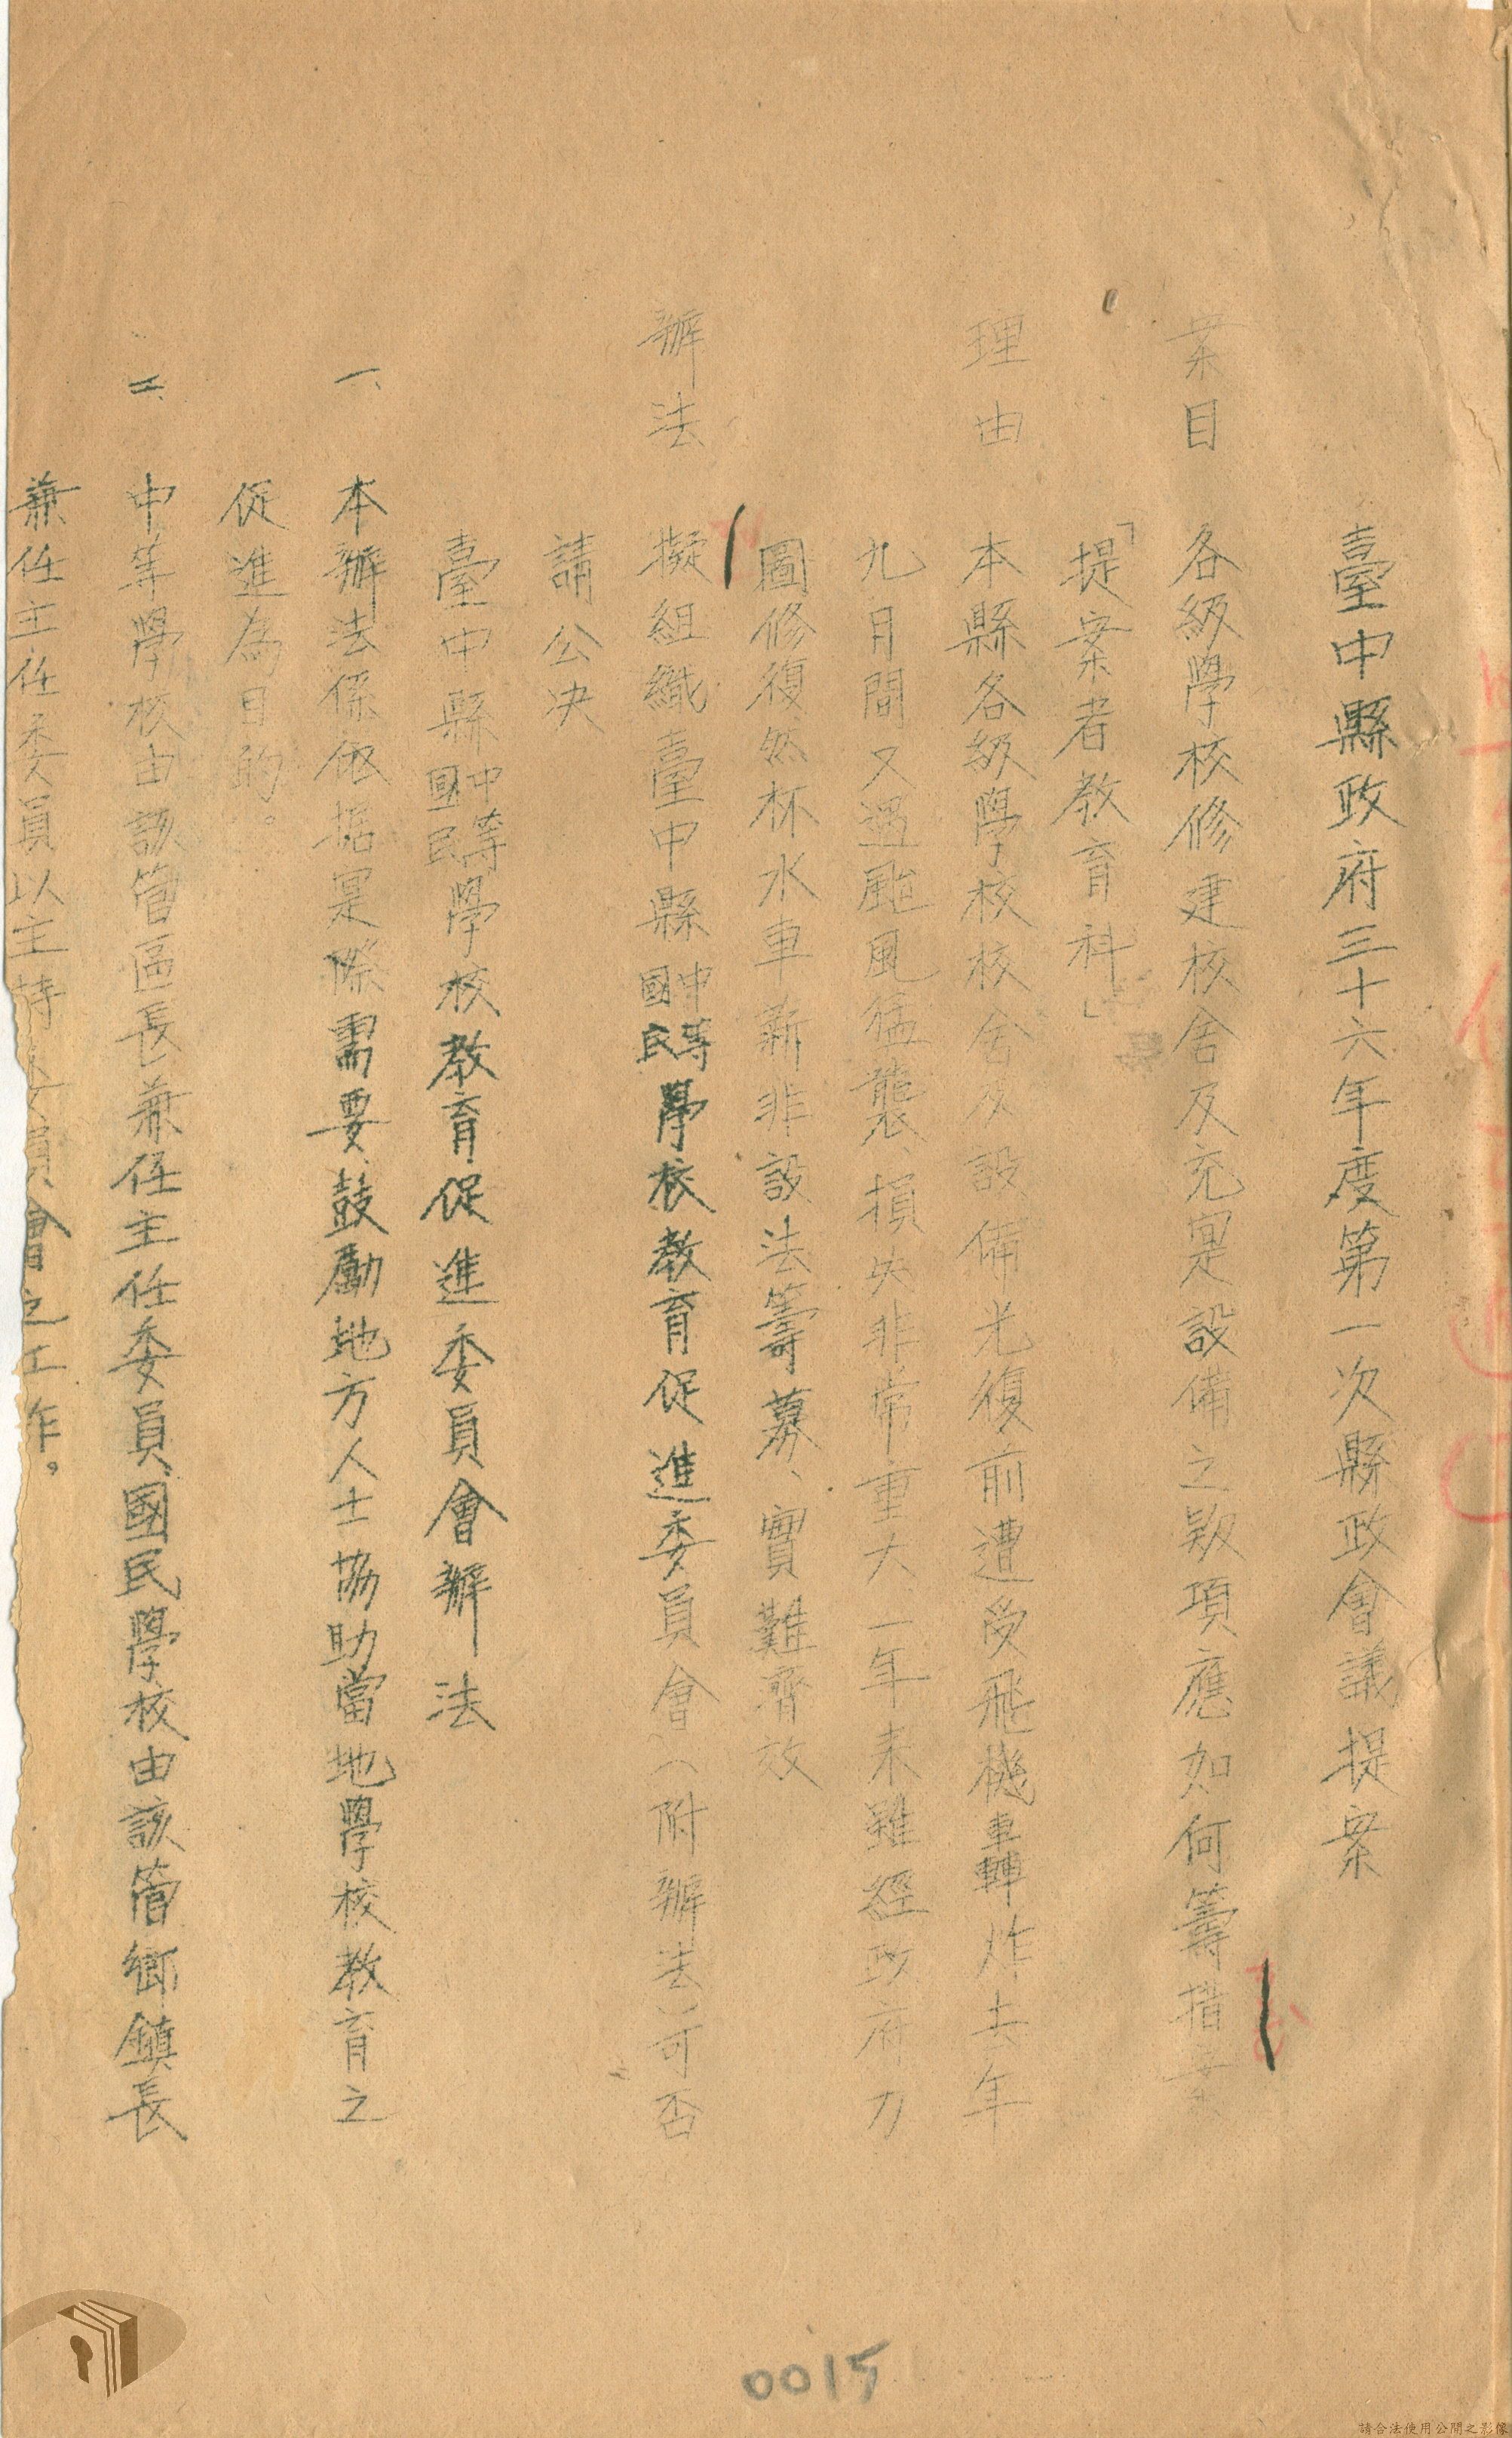 臺中縣政府三十六年度第一次縣政會議提案
案目　各級學校修建校舍及充寔設備之欵項應如何籌措案
「提案者教育科」
理由　本縣各級學校校舍及設備光復前遭受飛機轟炸去年
九月間又遇颱風猛襲、損失非常重大一年来雖經政府力
圖修復然杯水車薪非設法籌募、實難濟效
辦法　擬組織臺中縣中等國民學校教育促進委員會（附辦法）可否
請公决
臺中縣中等國民學校教育促進委員會辦法
一、本辦法係依据寔際需要、鼓勵地方人士協助當地學校教育之
促進為目的。
二、中等學校由該管區長兼任主任委員、國民學校由該管鄉鎮長
兼任主任委員以主持委員會之工作。
0015
請合法使用公開之影像